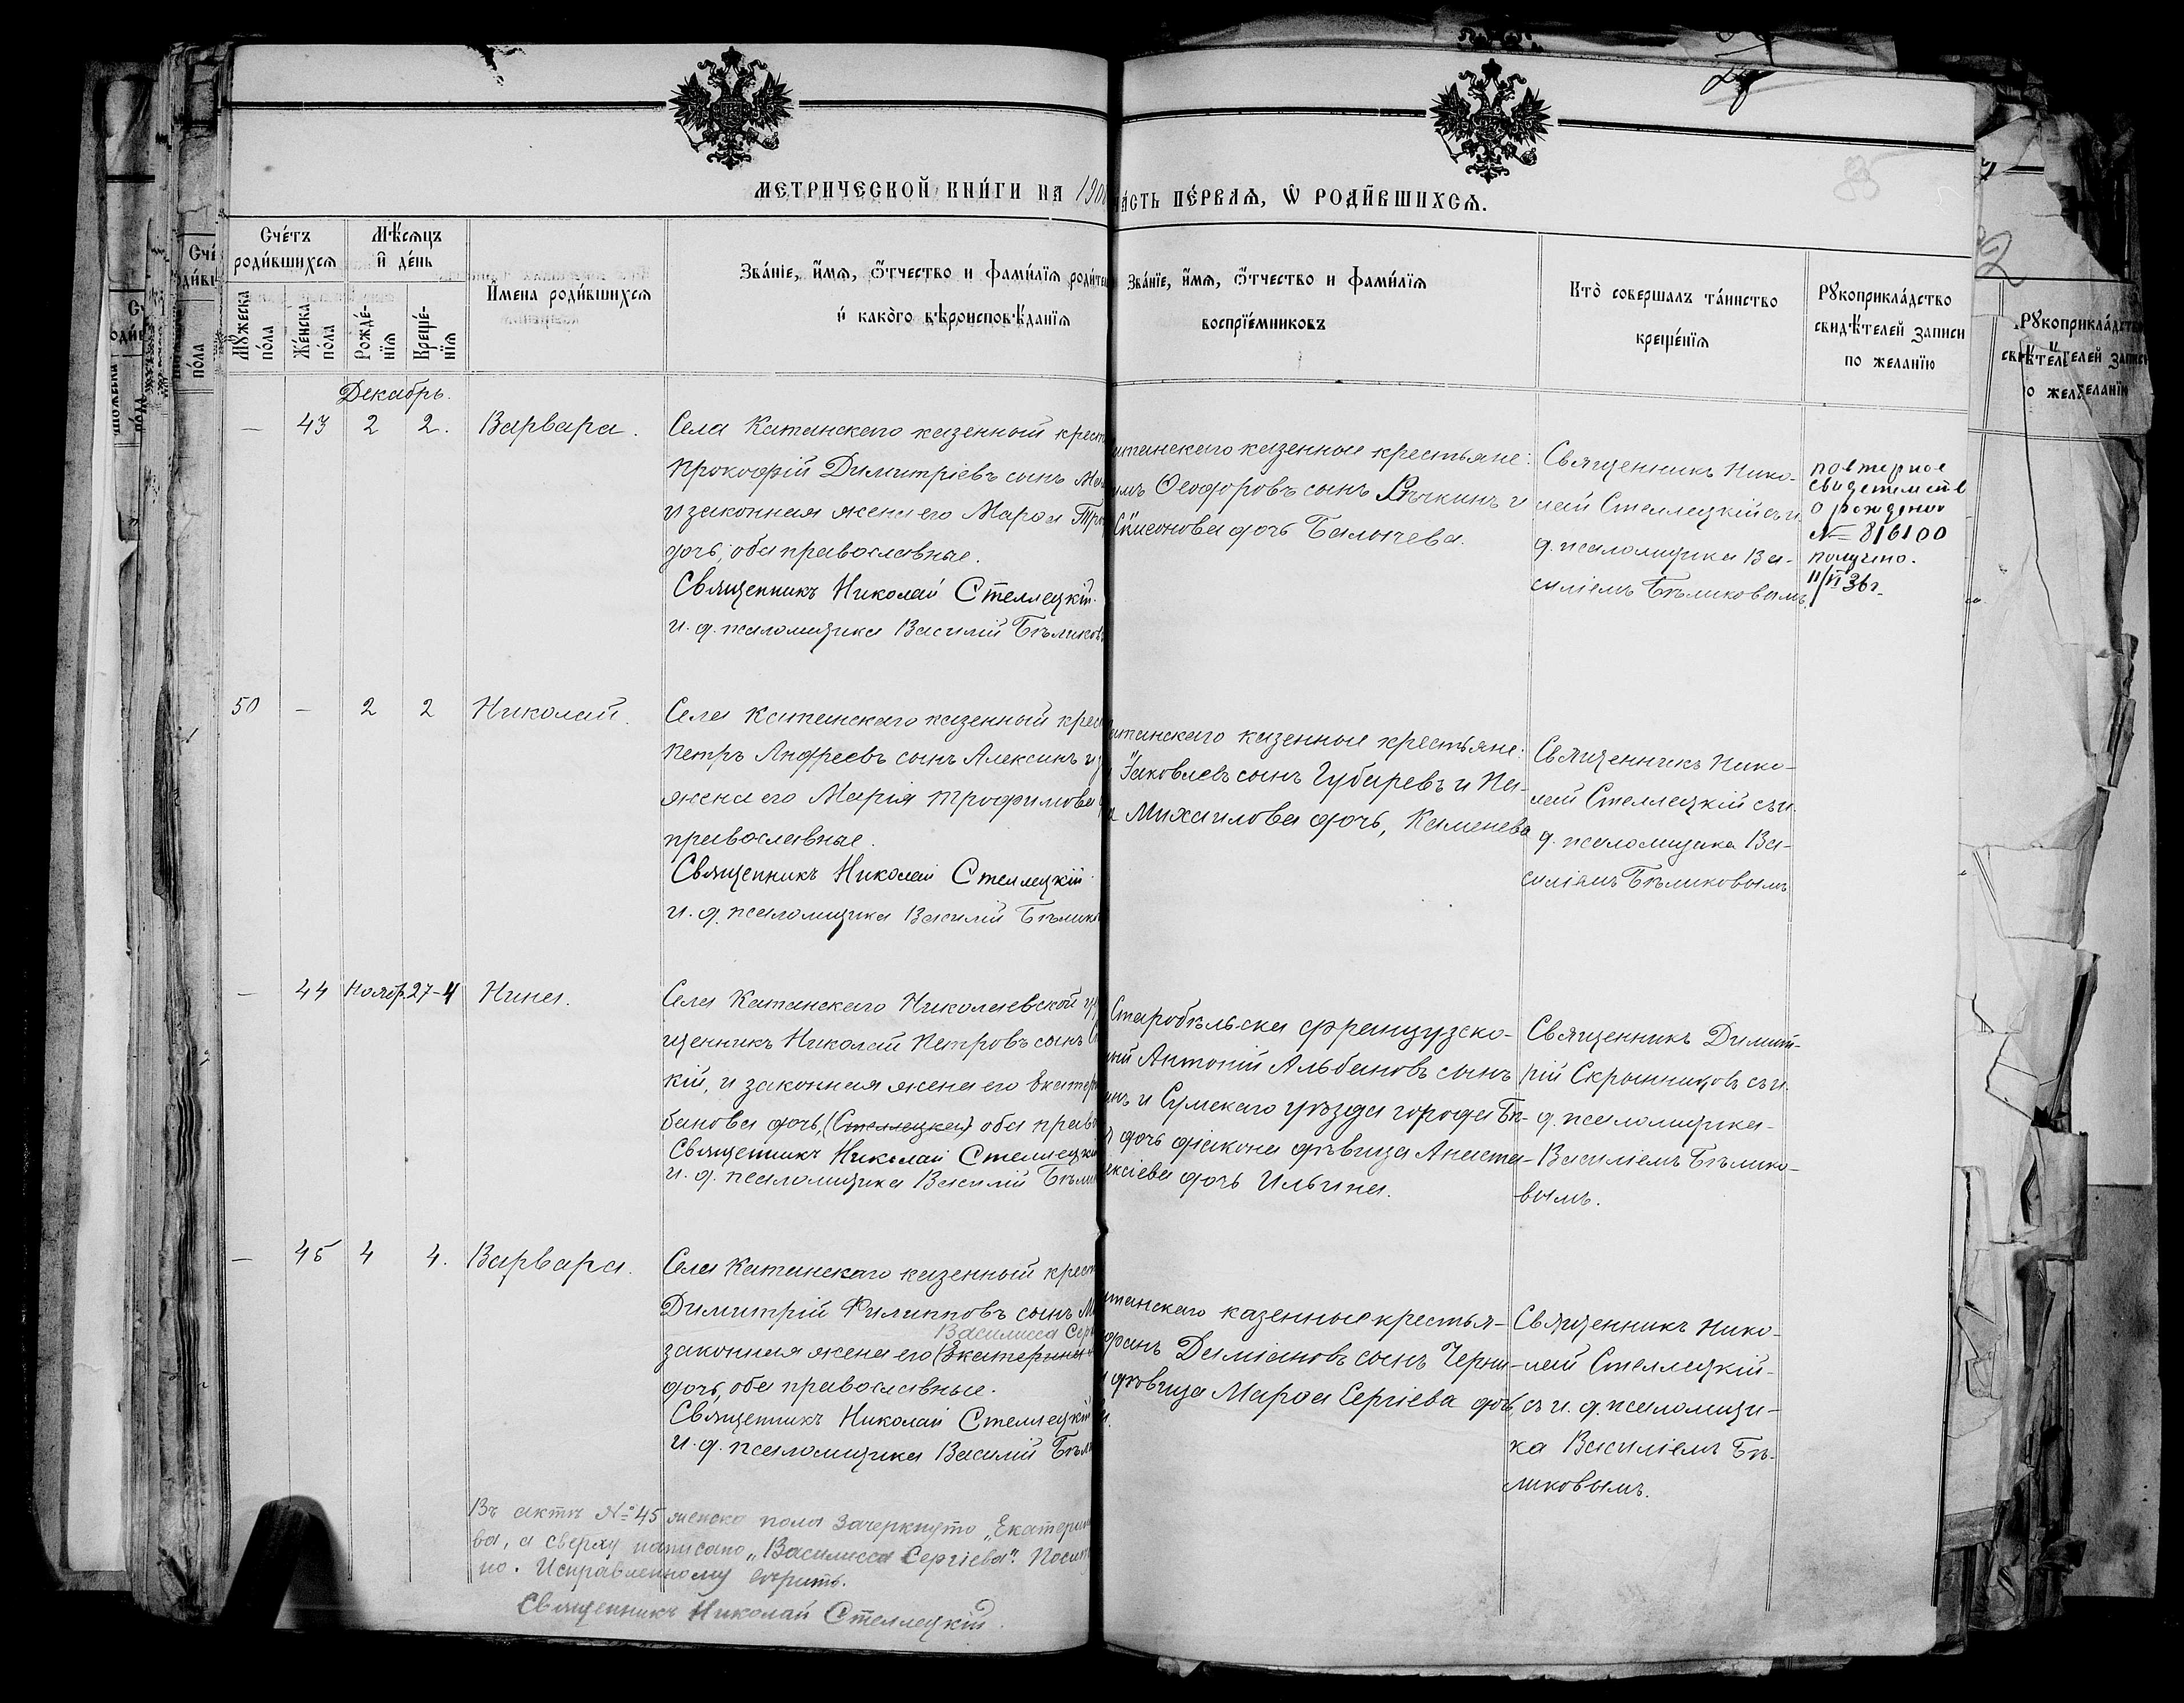 МЕТРИЧЕСКОЙ КНИ́ГИ НА 190
ЧА́СТЬ ПЕ́РВАѦ, Ѡ҆ РОДИ́ВШИХСѦ.
85
Сче́тъ роди́вшихсѧ
Мѣ́сѧцъ и҆ де́нь
И҆мена роди́вшихсѧ
Зва́нїе, и҆́мѧ, ѻ҆́тчество и фами́лїѧ роди́те
и҆ како́го вѣроисповѣ́данїѧ
Мꙋ́жеска по́ла
Же́нска по́ла
Рожде́-
нїѧ
Креще́-
нїѧ
Зва́нїе, и҆́мѧ, ѻ҆́тчество и фами́лїѧ
воспрїе́мниковъ
Кто̀ соверша́лъ та́инство
креще́нїѧ
Рꙋкоприкла́дство
свидѣ́телей записи
по жела́нїю
Декабрь.
— 43 2 2. Варвара.
Села Катанскаго казенный крест
Прокофій Димитріевъ сынъ
и законная жена его Марѳа
дочь, оба православные.
Священникъ Николай Стеллецкій.
и. д. псаломщика Василій Бѣликов
танскаго казенные крестьяне:
Ѳеодоровъ сынъ и
дочь Балычева.
Священникъ Нико-
лай Стеллецкій съ и.
д. псаломщика Ва-
силіемъ Бѣликовымъ
повторное
свидетельств
о рождении
№ 816100
получено.
11/VI 36г.
50 — 2 2 Николай.
Села Катанскаго казенный крес
Петръ Андреевъ сынъ Алексинъ и з
жена его Марія Трофимова
православные.
Священникъ Николай Стеллецкій
и. д. псаломщика Василій Бѣлик
атанскаго казенные крестьяне:
Іаковлевъ сынъ Губаревъ и Па-
Михаилова дочь, Каменева
Священникъ Нико-
лай Стеллецкій съ и.
д. псаломщика Ва-
силіемъ Бѣликовымъ
— 44 Ноябр. 27-4 Нина.
Села Катанскаго Николаевской ц
щенникъ Николай Петровъ сынъ С
кій, и законная жена его Екатер
банова дочь, (Стеллецкая) оба прав
Священникъ Николай Стеллецкі
и. д. псаломщика Василій Бѣли
Старобѣльска французско-
ный Антоній Альбановъ сынъ
и Сумскаго уѣзда города Бѣ-
дочь діакона дѣвица Анаста-
ексіева дочь Ильина.
Священникъ Димит-
рій Скрынниковъ съ и.
д. псаломщика-
Василіемъ Бѣлико-
вымъ.
— 45 4 4. Варвара.
Села Катанскаго казенный крест
Димитрій Филипповъ сынъ М
Василисса Сер
законная жена его (Екатерина
дочь, оба православные.
Священникъ Николай Стеллецкій
и. д. псаломщика Василій Бѣл
танскаго казенные крестья-
Даміановъ сынъ Черни-
дѣвица Марѳа Сергіева дочь
Священникъ Нико-
лай Стеллецкій-
съ и. д. псаломщи-
ка Василіемъ Бѣ-
ликовымъ.
Въ актѣ № 45 женска пола зачеркнуто „Екатерин
ва, а сверху написано „Василисса Сергіева".
но. Исправленному вѣрить.
Священникъ Николай Стеллецкій.